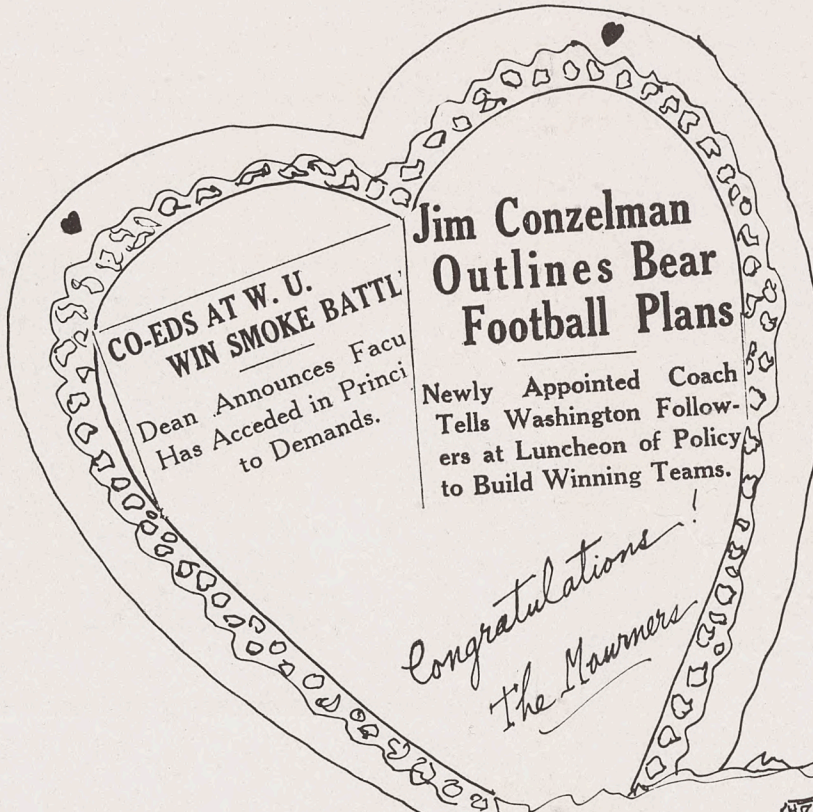 CO-EDS AT W. U.
WIN SMOKE BATTL
Dean Announces Facu
Has Acceded in Princi
to Demands.
Jim Conzelman
Outlines Bear
Football Plans
Newly Appointed Coach
Tells Washington Follow-
ers at Luncheon of Policy
to Build Winning Teams.
Congratulations!
The Mourners